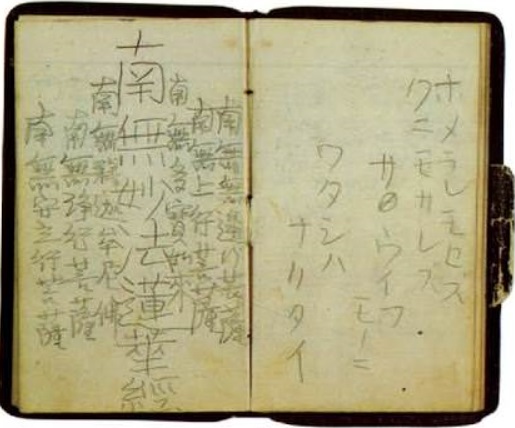 ホメラレモセズ
クニモサレズ
サウイフ
モノニ
ワタシハ
ナリタイ
南無無邊行菩薩
南無上行菩薩
南無多寳如来
南無妙法蓮華經
南無釈迦牟尼佛
南無浄行菩薩
南無安立行菩薩